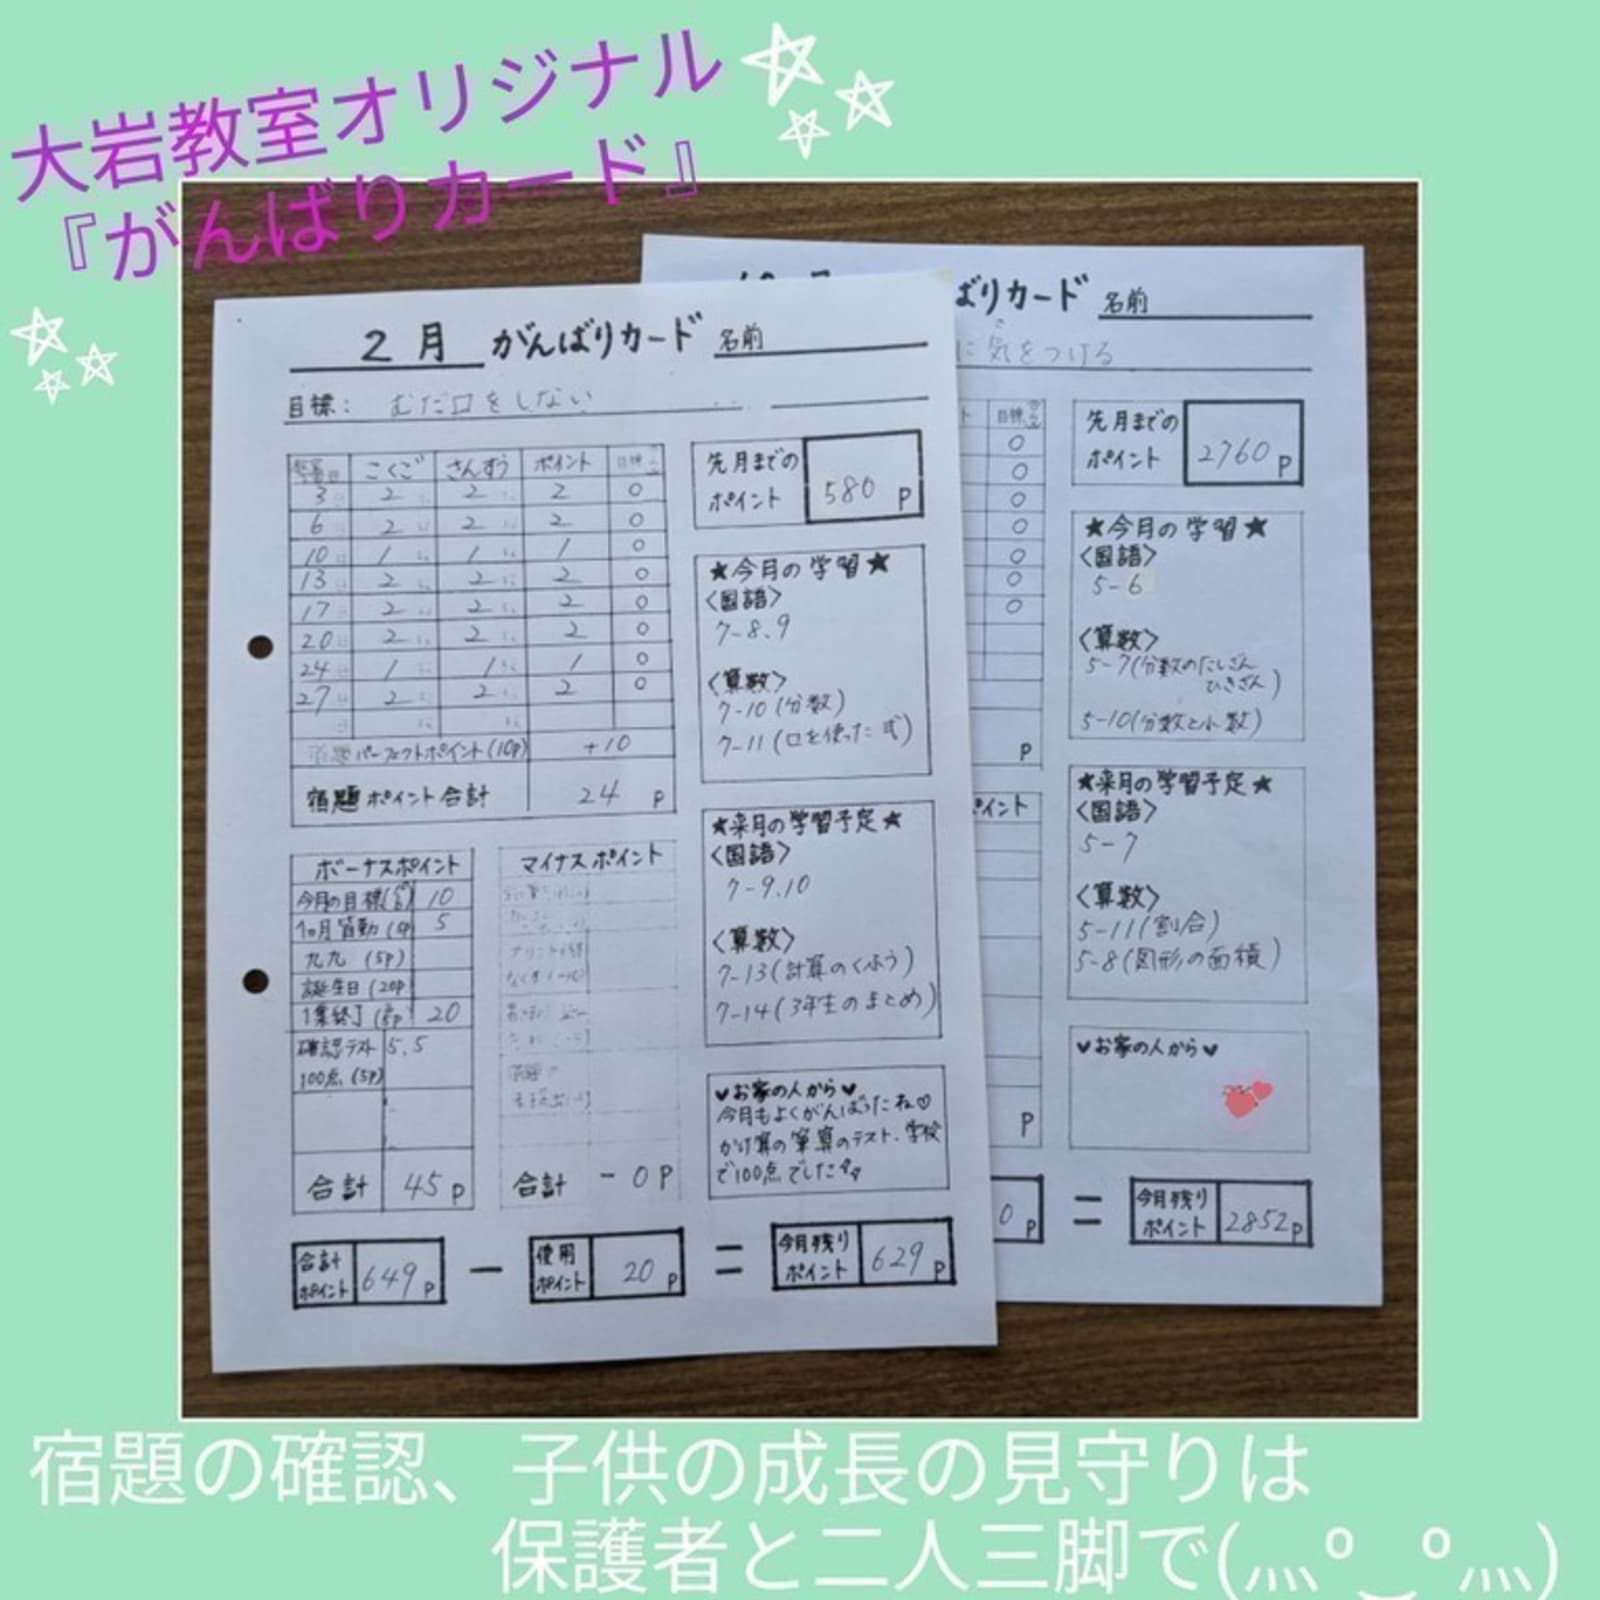 大岩教室オリジナル
『がんばりカード』
2月 がんばりカード 名前
目標: むだ口をしない
こくご さんすう ポイント 目標
3 2 2 2 ○
6 2 2 2 ○
10 1 1 1 ○
13 2 2 2 ○
17 2 2 2 ○
20 2 2 2 ○
24 1 1 1 ○
27 2 2 2 ○
宿題パーフェクトポイント(10p) +10
宿題ポイント合計 24 p
ボーナスポイント
今月の目標 10
1ヶ月皆勤 5
九九 (5p)
誕生日 (20p
1集終了 20
確認テスト 5.5
100点 (5p)
合計 45 p
マイナスポイント
合計 - 0 P
先月までの
ポイント 580 p
★今月の学習★
〈国語〉
7-8.9
〈算数〉
7-10(分数)
7-11(□を使った式)
★来月の学習予定★
〈国語〉
7-9.10
〈算数〉
7-13(計算のくふう)
7-14(3年生のまとめ)
♥お家の人から♥
今月もよくがんばったね♡
かけ算の筆算のテスト、学校
で100点でした
合計
ポイント 649 p
−
使用
ポイント 20 p
=
今月残り
ポイント 629 p
ばりカード 名前
に気をつける
目標
○
○
○
○
○
○
○
p
イント
P
0 p
先月までの
ポイント 2760 p
★今月の学習★
〈国語〉
5-6
〈算数〉
5-7(分数のたしざん
ひきざん)
5-10(分数と小数)
★来月の学習予定★
〈国語〉
5-7
〈算数〉
5-11(割合)
5-8(図形の面積)
♥お家の人から♥
=
今月残り
ポイント 2852 p
宿題の確認、子供の成長の見守りは
保護者と二人三脚で(灬º‿º灬)